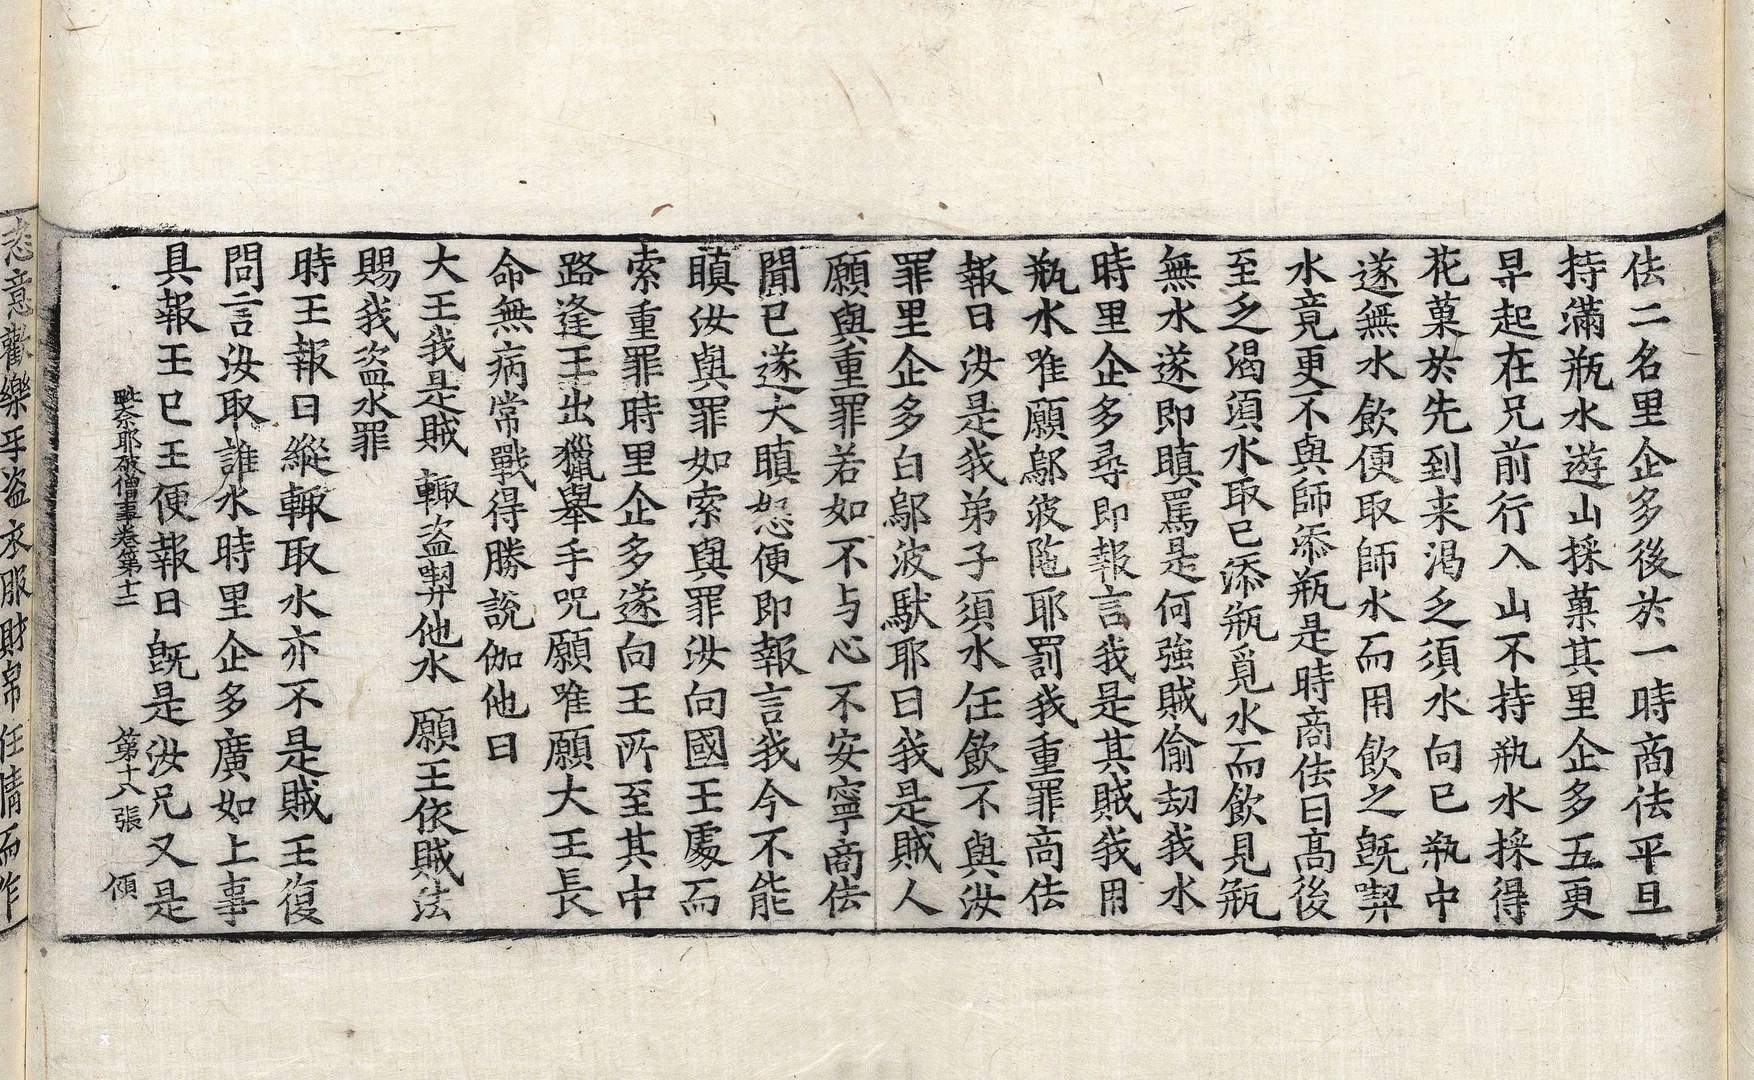 佉二名里企多後於一時商佉平旦
持滿瓶水遊山採菓其里企多五更
早起在兄前行入山不持瓶水採得
花菓於先到来渴乏須水向已瓶中
遂無水飲便取師水而用飲之旣㓗
水竟更不與師添瓶是時商佉日高後
至乏渴須水取已添瓶覓水而飲見瓶
無水遂即瞋罵是何強賊偷劫我水
時里企多尋即報言我是其賊我用
瓶水唯願鄔波陁耶罰我重罪商佉
報曰汝是我弟子須水任飲不與汝
罪里企多白鄔波馱耶曰我是賊人
願與重罪若如不与心不安寧商佉
聞已遂大瞋怒便即報言我今不能
瞋汝與罪如索與罪汝向國王處而
索重罪時里企多遂向王所至其中
路逢王出獵舉手咒願唯願大王長
命無病常戰得勝說伽他曰
大王我是賊 輙盜㓗他水 願王依賊法
賜我盜水罪
時王報曰縱輙取水亦不是賊王復
問言汝取誰水時里企多廣如上事
具報王已王便報曰旣是汝兄又是
毗奈耶破僧事卷第十二 第十六張 傾
恣意歡樂乎盜衣服財帛任情而作